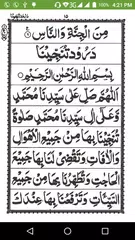 4:21 PM
۱۵
مِنَ الْجِنَّةِ وَالنَّاسِ
درود تنجینا
بِسْمِ اللهِ الرَّحْمٰنِ الرَّحِيْمِ
اَللّٰهُمَّ صَلِّ عَلٰى سَيِّدِنَا مُحَمَّدٍ
وَّعَلٰى اٰلِ سَيِّدِنَا مُحَمَّدٍ صَلٰوةً
تُنْجِيْنَا بِهَا مِنْ جَمِيْعِ الْاَهْوَالِ
وَالْاٰفَاتِ وَتَقْضِىْ لَنَا بِهَا جَمِيْعَ
الْحَاجٰتِ وَتُطَهِّرُنَا بِهَا مِنْ جَمِيْعِ
السَّيِّاٰتِ وَتَرْفَعُنَا بِهَا عِنْدَكَ